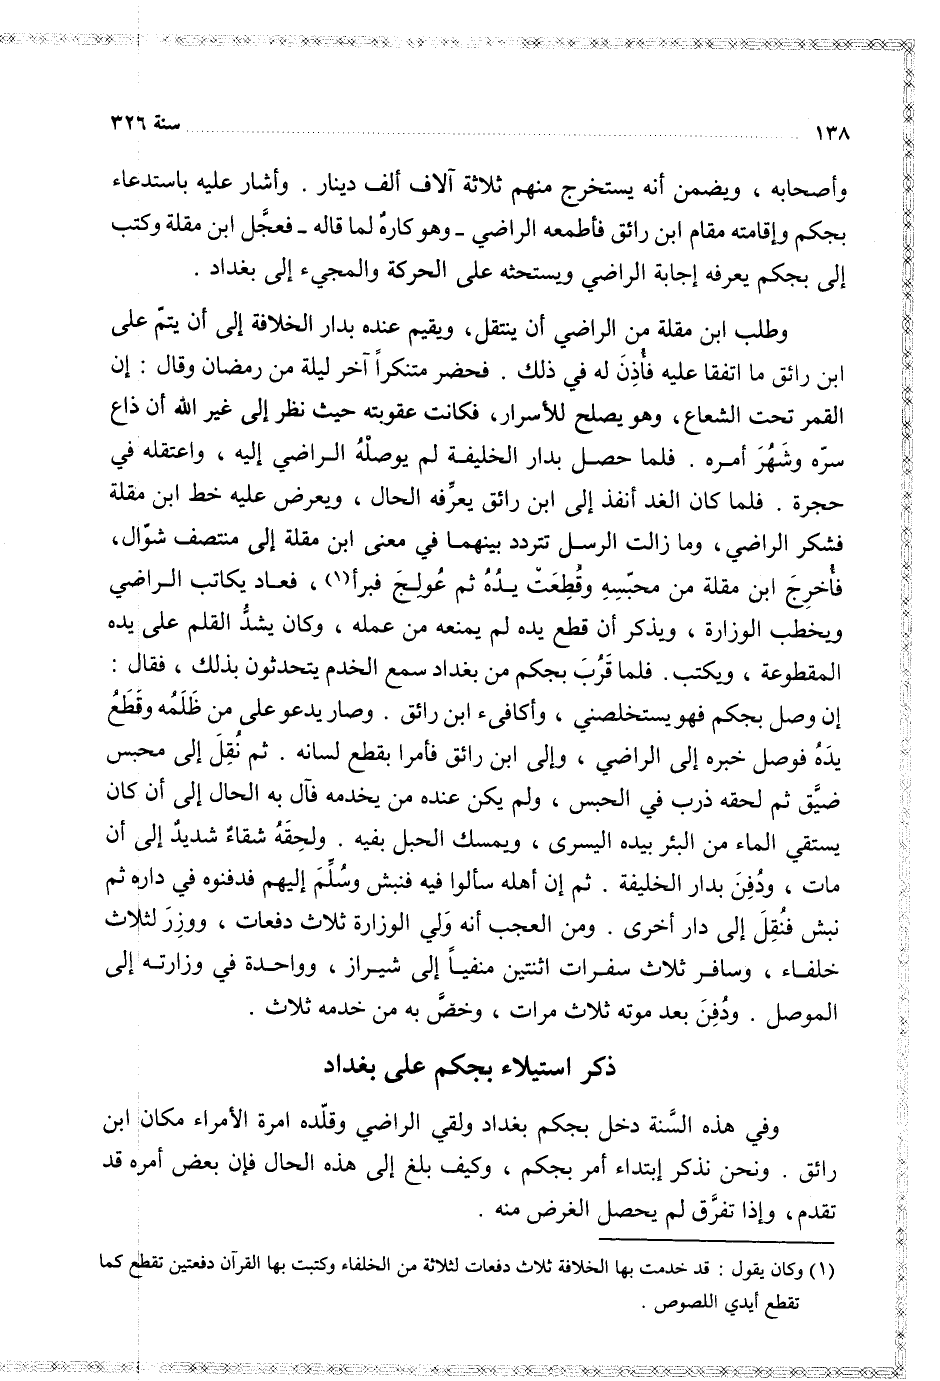 ١٣٨ ........ سنة ٣٢٦
وأصحابه ، ويضمن أنه يستخرج منهم ثلاثة آلاف ألف دينار . وأشار عليه باستدعاء
بجكم وإقامته مقام ابن رائق فأطمعه الراضي ـ وهو كارهٌ لما قاله ـ فعجَّل ابن مقلة وكتب
إلى بجكم يعرفه إجابة الراضي ويستحثه على الحركة والمجيء إلى بغداد .
وطلب ابن مقلة من الراضي أن ينتقل، ويقيم عنده بدار الخلافة إلى أن يتمّ على
ابن رائق ما اتفقا عليه فأُذِنَ له في ذلك . فحضر متنكراً آخر ليلة من رمضان وقال : إن
القمر تحت الشعاع، وهو يصلح للأسرار، فكانت عقوبته حيث نظر إلى غير الله أن ذاع
سرّه وشَهُرَ أمره . فلما حصل بدار الخليفة لم يوصلْهُ الراضي إليه ، واعتقله في
حجرة . فلما كان الغد أنفذ إلى ابن رائق يعرِّفه الحال ، ويعرض عليه خط ابن مقلة
فشكر الراضي، وما زالت الرسل تتردد بينهما في معنى ابن مقلة إلى منتصف شوّال،
فأُخرِجَ ابن مقلة من محبّسِهِ وقُطِعَتْ يدُهُ ثم عُولِجَ فبرأ(١) ، فعاد يكاتب الراضي
ويخطب الوزارة ، ويذكر أن قطع يده لم يمنعه من عمله ، وكان يشدُّ القلم على يده
المقطوعة ، ويكتب. فلما قَرُبَ بجكم من بغداد سمع الخدم يتحدثون بذلك ، فقال :
إن وصل بجكم فهو يستخلصني ، وأكافىء ابن رائق . وصار يدعو على من ظَلَمُه وقَطَعُ
يدَهُ فوصل خبره إلى الراضي ، وإلى ابن رائق فأمرا بقطع لسانه . ثم نُقِلَ إلى محبس
ضيَّق ثم لحقه ذرب في الحبس ، ولم يكن عنده من يخدمه فآل به الحال إلى أن كان
يستقي الماء من البئر بيده اليسرى ، ويمسك الحبل بفيه . ولحِقَهُ شقاءٌ شديدٌ إلى أن
مات ، ودُفِنَ بدار الخليفة . ثم إن أهله سألوا فيه فنبش وسُلِّمَ إليهم فدفنوه في داره ثم
نبش فنُقِلَ إلى دار أخرى . ومن العجب أنه وَلي الوزارة ثلاث دفعات ، ووزِرَ لثلاث
خلفاء ، وسافر ثلاث سفرات اثنتين منفياً إلى شيراز ، وواحدة في وزارته إلى
الموصل . ودُفِنَ بعد موته ثلاث مرات ، وخصَّ به من خدمه ثلاث .
ذكر استيلاء بجكم على بغداد
وفي هذه السَّنة دخل بجكم بغداد ولقي الراضي وقلّده امرة الأمراء مكان ابن
رائق . ونحن نذكر إبتداء أمر بجكم ، وكيف بلغ إلى هذه الحال فإن بعض أمره قد
تقدم، وإذا تفرَّق لم يحصل الغرض منه .
(١) وكان يقول : قد خدمت بها الخلافة ثلاث دفعات لثلاثة من الخلفاء وكتبت بها القرآن دفعتين تقطع كما
تقطع أيدي اللصوص .